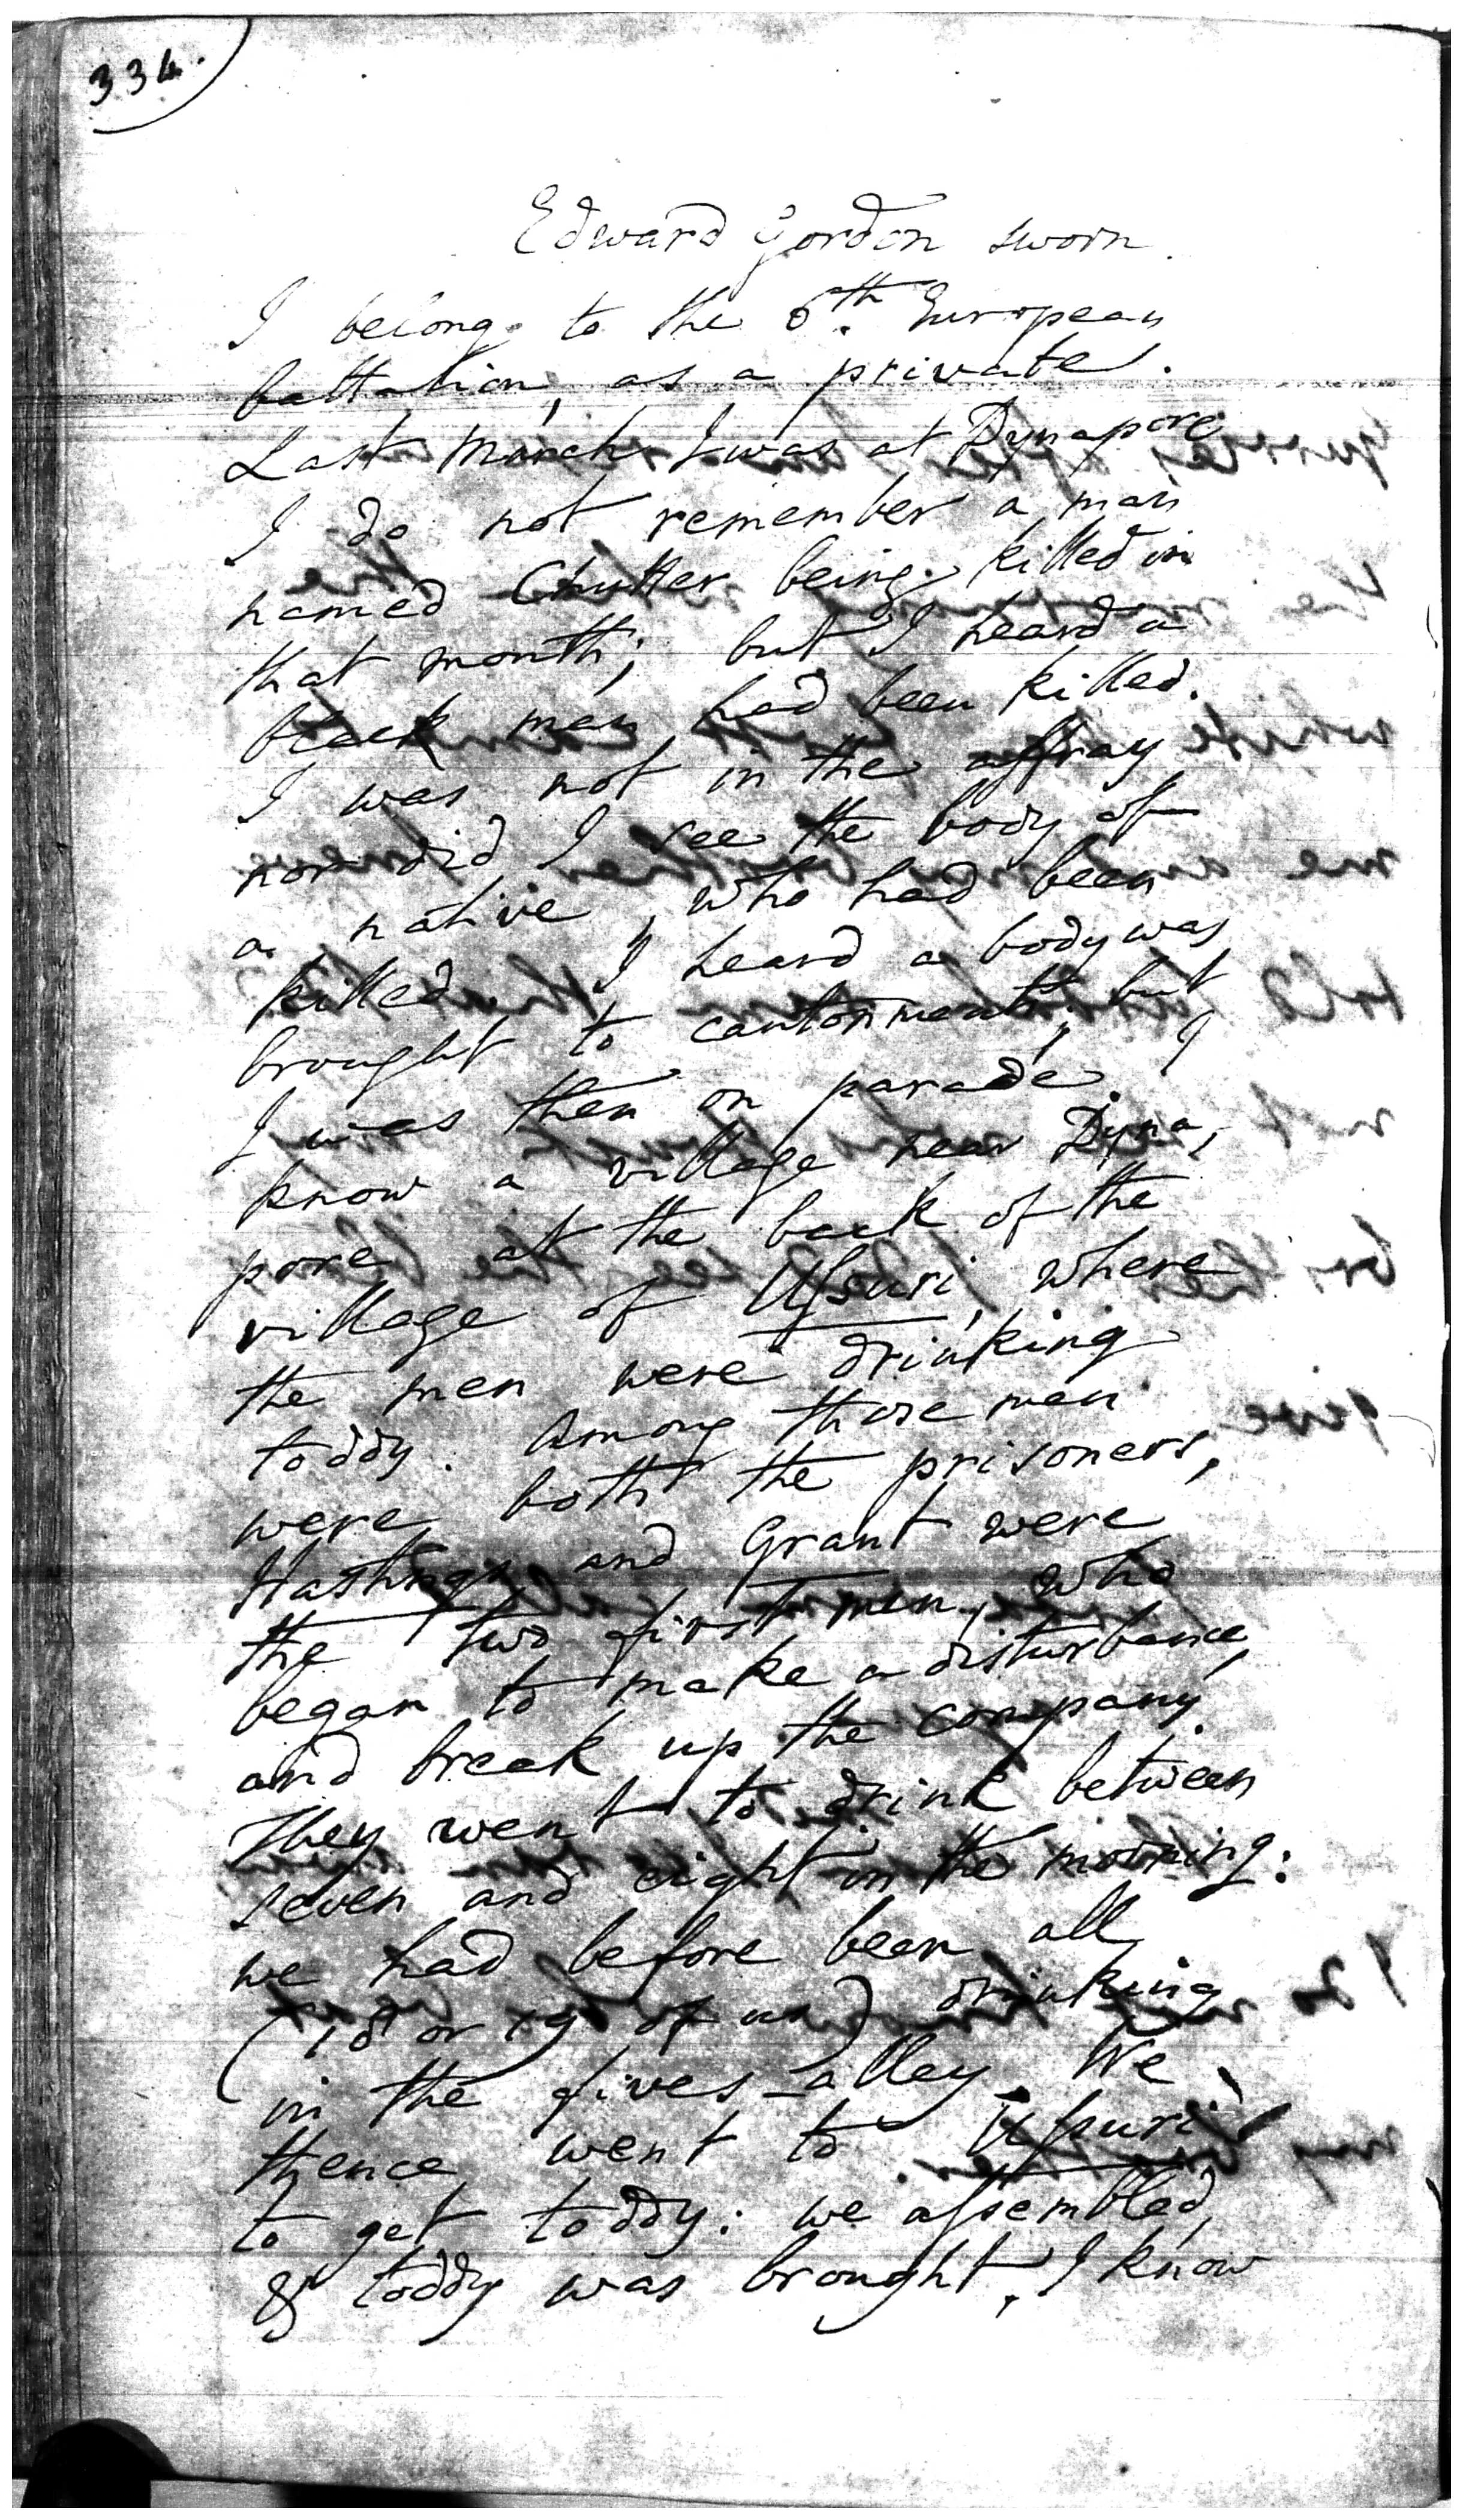 334.
Edward Gordon sworn.
I belong to the 6th. European
battalion, as a private.
Last March I was at Dynapore
I do not remember a man
named Chutter being killed in
that month; but I heard a
black man had been killed.
I was not in the affray
nor did I see the body of
a native, who had been
killed. I heard a body was
brought to cantonments; but
I was then on parade. I
know a village near Dyna,
pore at the back of the
village of Ussuri, where
the men were drinking
toddy. Among those men
were both the prisoners,
Hastings and Grant were
the two first men, who
began to make a disturbance,
and break up the company.
They went to drink between
seven and eight in the morning:
we had before been all
(18 or 19 of us) drinking
in the fives-alley. We
thence went to Ussuri
to get toddy: we assembled,
& toddy was brought, I know